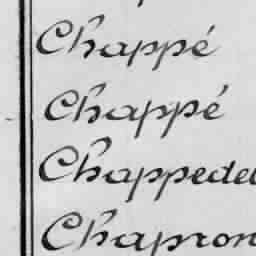 Chappé
Chappé
Chappedel
Chapron